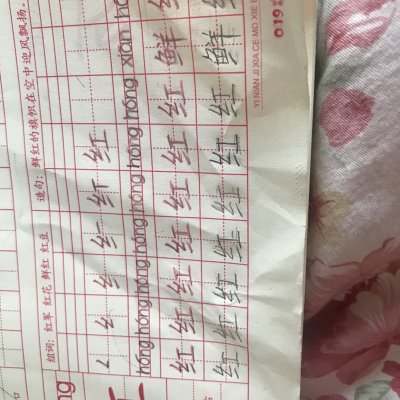 组词: 红军 红花 鲜红 红豆 造句: 鲜红的旗帜在空中迎风飘扬。
红
hóng hóng hóng hóng hóng hóng hóng xiān
红 红 红 红 红 红 红 鲜 红
红 红 红 红 红 红 红 鲜 红
YI NIAN JI XIA CE MO XIE
019